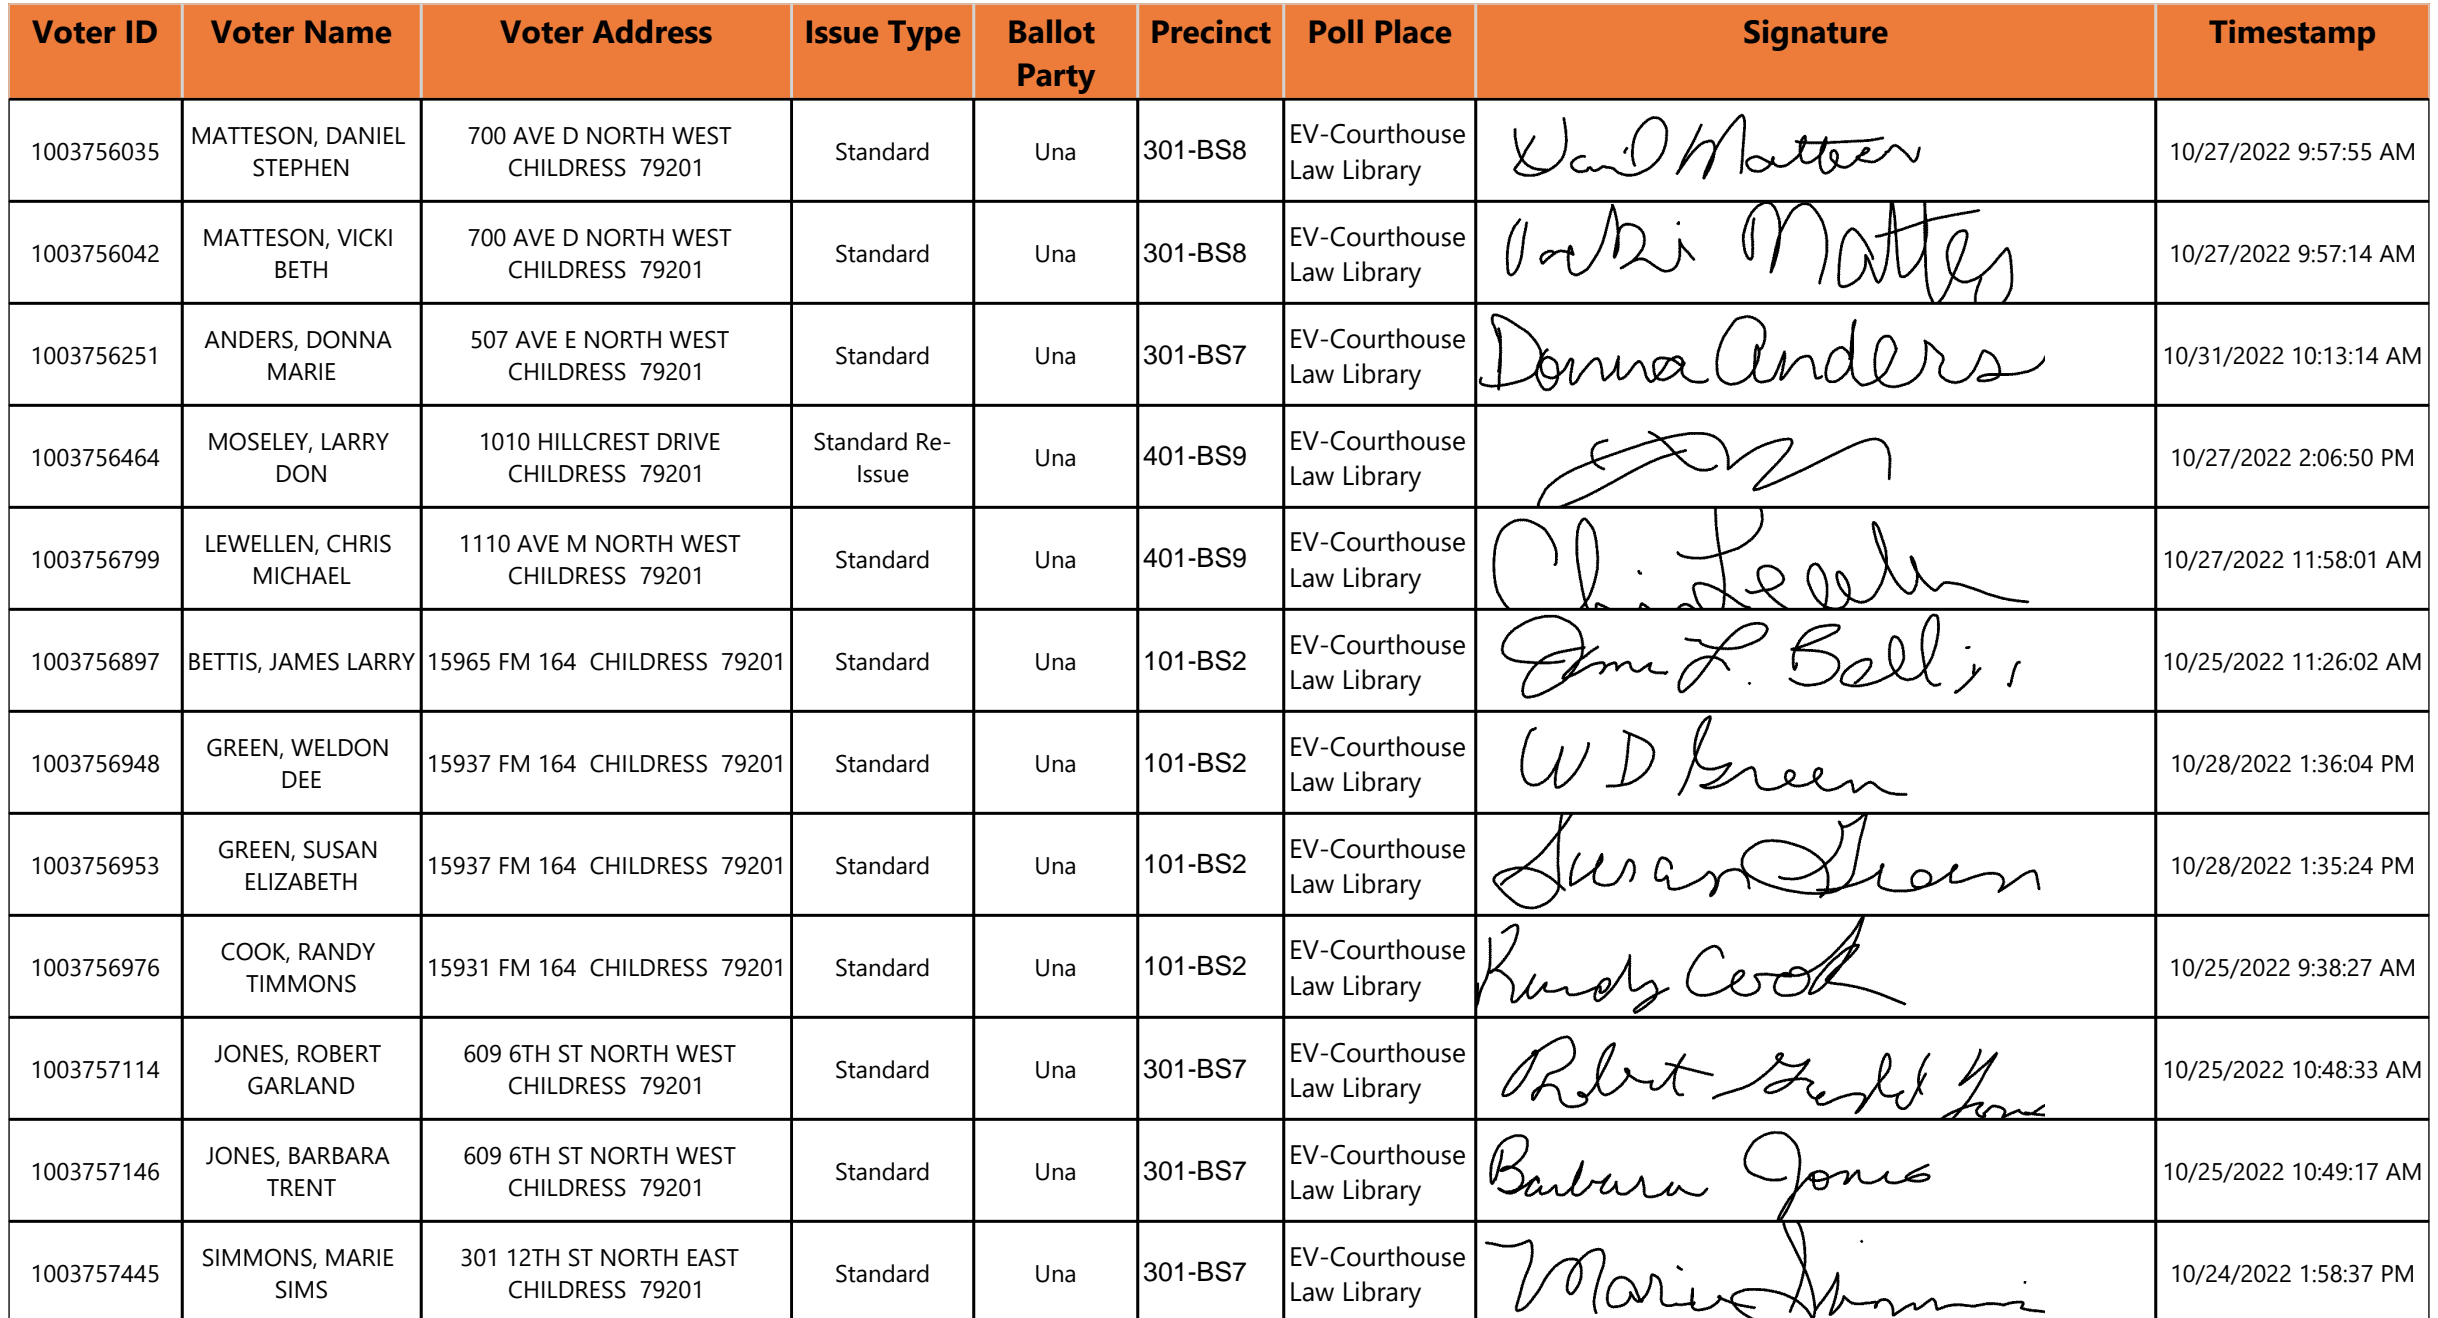 Voter ID Voter Name Voter Address Issue Type Ballot Party Precinct Poll Place Signature Timestamp
1003756035 MATTESON, DANIEL STEPHEN 700 AVE D NORTH WEST CHILDRESS 79201 Standard Una 301-BS8 EV-Courthouse Law Library Daniel Matteson 10/27/2022 9:57:55 AM
1003756042 MATTESON, VICKI BETH 700 AVE D NORTH WEST CHILDRESS 79201 Standard Una 301-BS8 EV-Courthouse Law Library Vicki Mattes 10/27/2022 9:57:14 AM
1003756251 ANDERS, DONNA MARIE 507 AVE E NORTH WEST CHILDRESS 79201 Standard Una 301-BS7 EV-Courthouse Law Library Donna Anders 10/31/2022 10:13:14 AM
1003756464 MOSELEY, LARRY DON 1010 HILLCREST DRIVE CHILDRESS 79201 Standard Re-Issue Una 401-BS9 EV-Courthouse Law Library 10/27/2022 2:06:50 PM
1003756799 LEWELLEN, CHRIS MICHAEL 1110 AVE M NORTH WEST CHILDRESS 79201 Standard Una 401-BS9 EV-Courthouse Law Library Chris Lewellen 10/27/2022 11:58:01 AM
1003756897 BETTIS, JAMES LARRY 15965 FM 164 CHILDRESS 79201 Standard Una 101-BS2 EV-Courthouse Law Library L. 10/25/2022 11:26:02 AM
1003756948 GREEN, WELDON DEE 15937 FM 164 CHILDRESS 79201 Standard Una 101-BS2 EV-Courthouse Law Library W D Green 10/28/2022 1:36:04 PM
1003756953 GREEN, SUSAN ELIZABETH 15937 FM 164 CHILDRESS 79201 Standard Una 101-BS2 EV-Courthouse Law Library Susan Green 10/28/2022 1:35:24 PM
1003756976 COOK, RANDY TIMMONS 15931 FM 164 CHILDRESS 79201 Standard Una 101-BS2 EV-Courthouse Law Library Randy Cook 10/25/2022 9:38:27 AM
1003757114 JONES, ROBERT GARLAND 609 6TH ST NORTH WEST CHILDRESS 79201 Standard Una 301-BS7 EV-Courthouse Law Library Robert Garland Jones 10/25/2022 10:48:33 AM
1003757146 JONES, BARBARA TRENT 609 6TH ST NORTH WEST CHILDRESS 79201 Standard Una 301-BS7 EV-Courthouse Law Library Barbara Jones 10/25/2022 10:49:17 AM
1003757445 SIMMONS, MARIE SIMS 301 12TH ST NORTH EAST CHILDRESS 79201 Standard Una 301-BS7 EV-Courthouse Law Library Marie Simmons 10/24/2022 1:58:37 PM